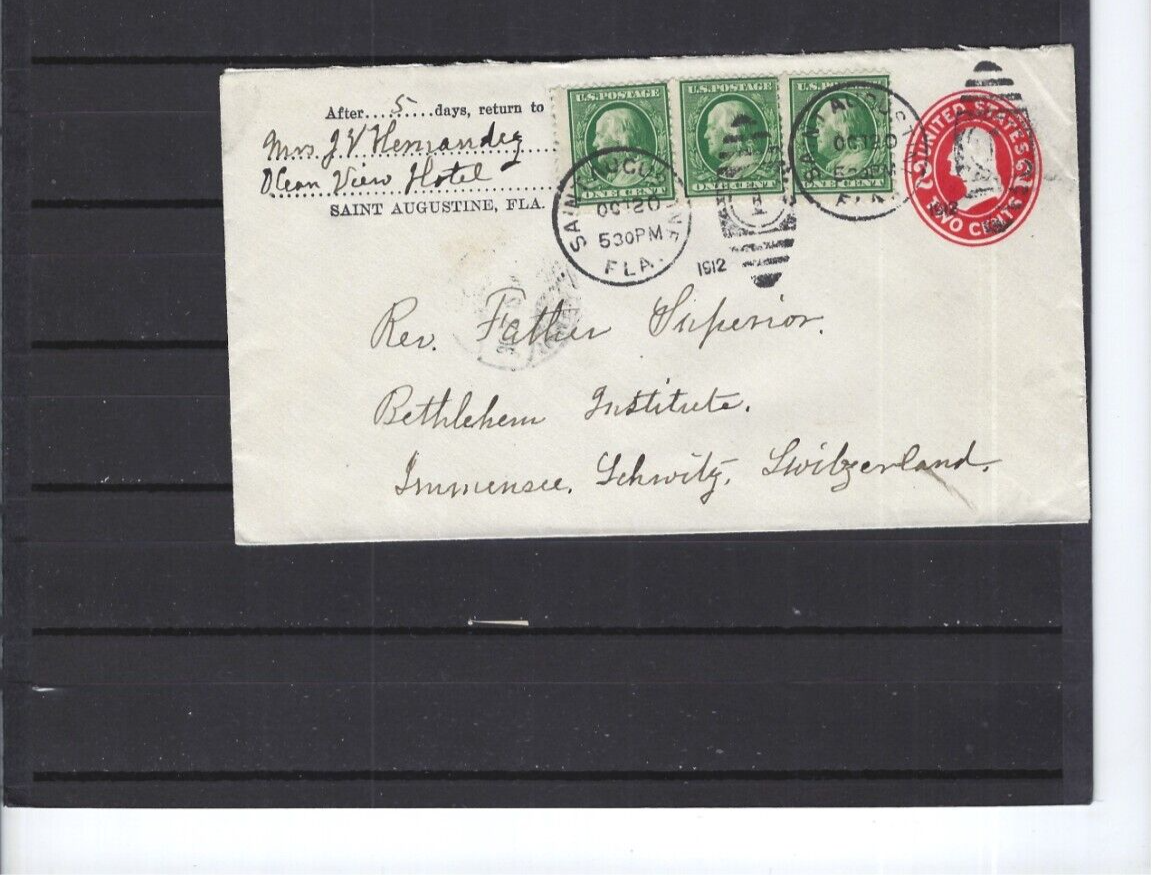 After...5....days, return to
Mrs J V Hernandez
Ocean View Hotel
SAINT AUGUSTINE, FLA.
U.S. POSTAGE
ONE CENT
U.S. POSTAGE
ONE CENT
U.S. POSTAGE
ONE CENT
UNITED STATES
2 2
TWO CENTS
SAINT AUGUSTINE
OCT 20
530PM
FLA.
1912
SAINT AUGUSTINE
OCT 20
530PM
FLA.
1912
Rev. Father Superior.
Bethlehem Institute.
Immensee, Schwitz, Switzerland.